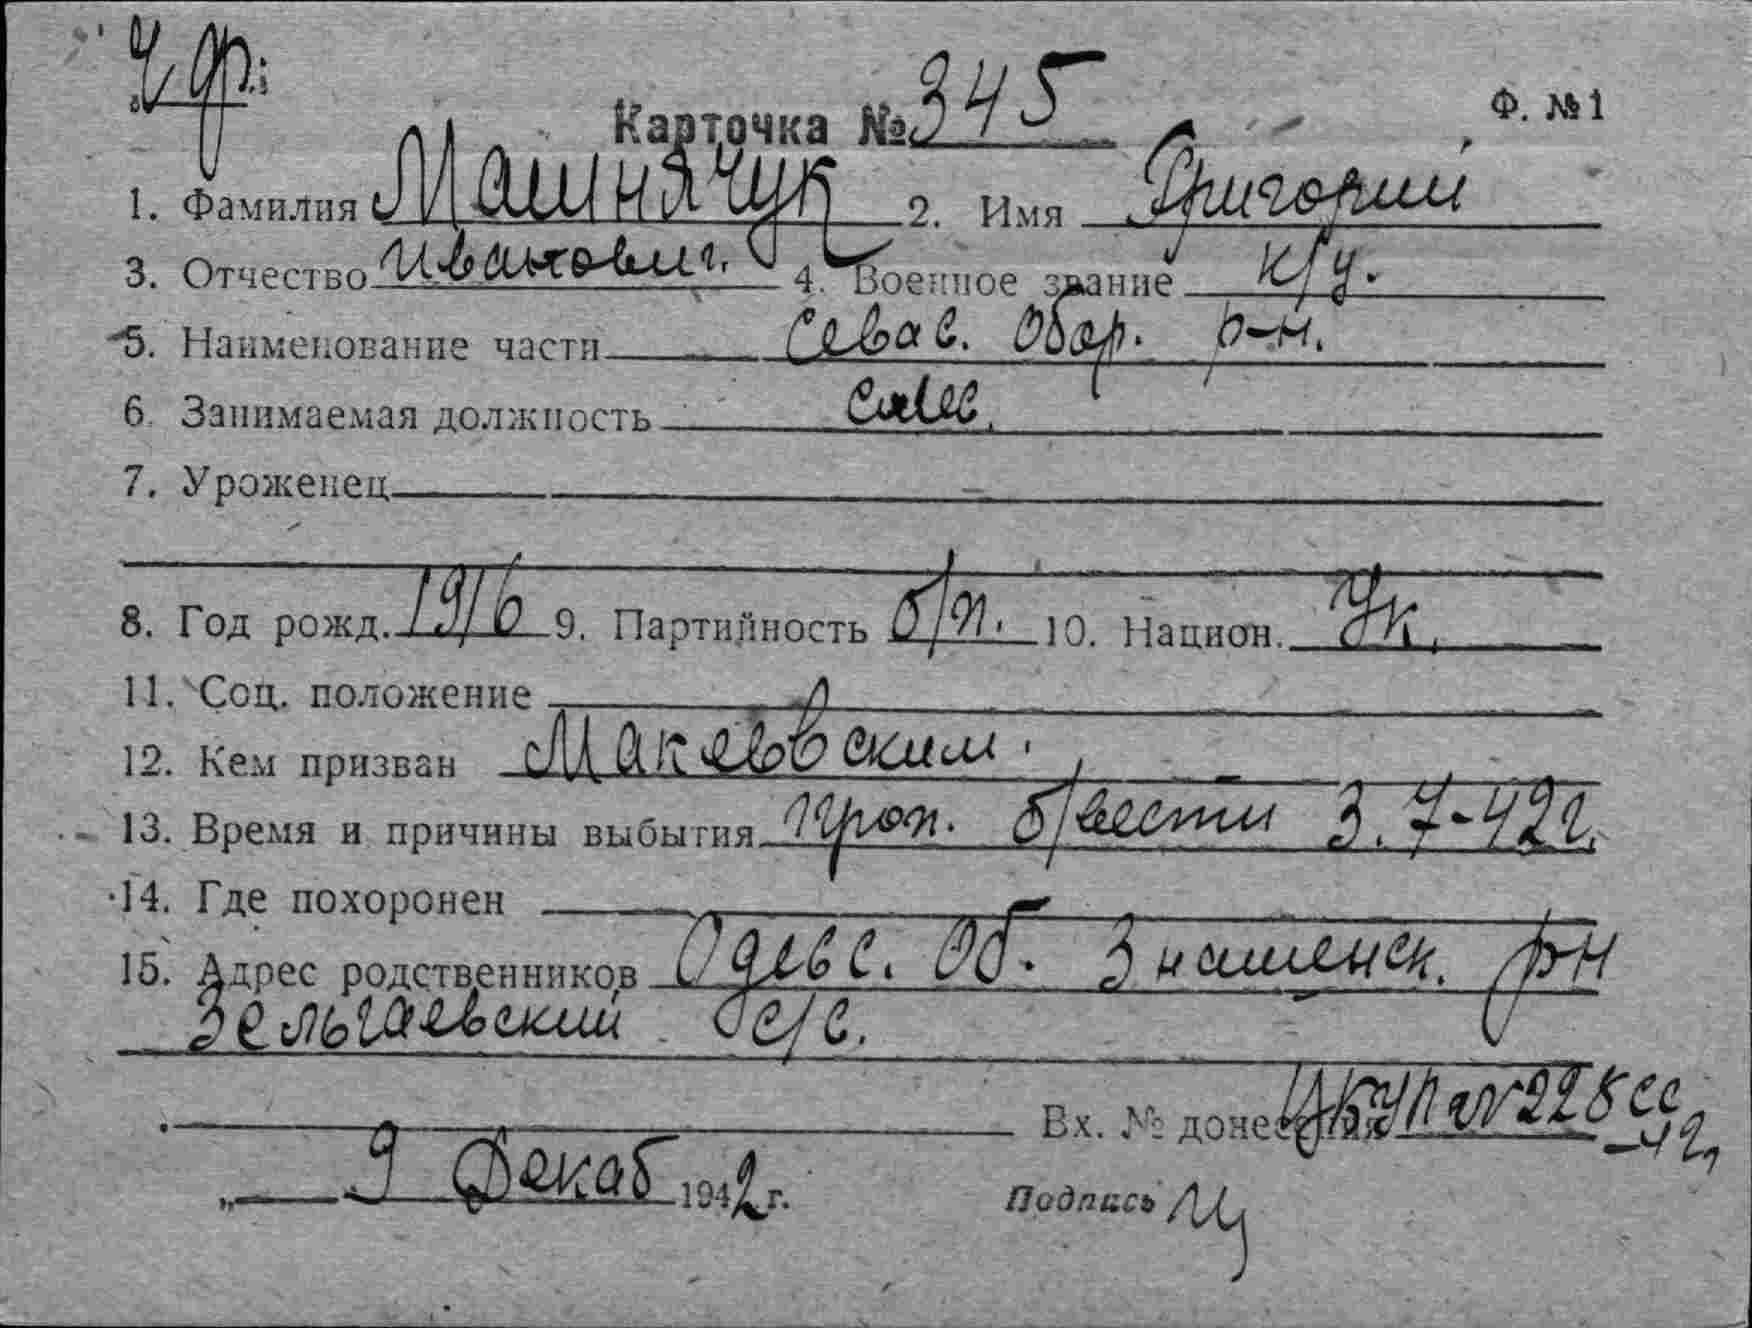 Ч ф.
Карточка № 345 Ф. № 1
1. Фамилия Машнячук 2. Имя Григорий
3. Отчество Иванович. 4. Военное звание к/у.
5. Наименование части Севас. Обор. р-н.
6. Занимаемая должность
7. Уроженец
8. Год рожд. 1916 9. Партийность б/п. 10. Национ. Ук.
11. Соц. положение
12. Кем призван Макеевским.
13. Время и причины выбытия проп. б/вести 3.7-42г.
14. Где похоронен
15. Адрес родственников Одесс. Об. Знаменск. рн
Зельгаевский с/с.
Вх. № донесения УКУП №228сс
-42,
„ 9 Декаб 1942 г. Подпись